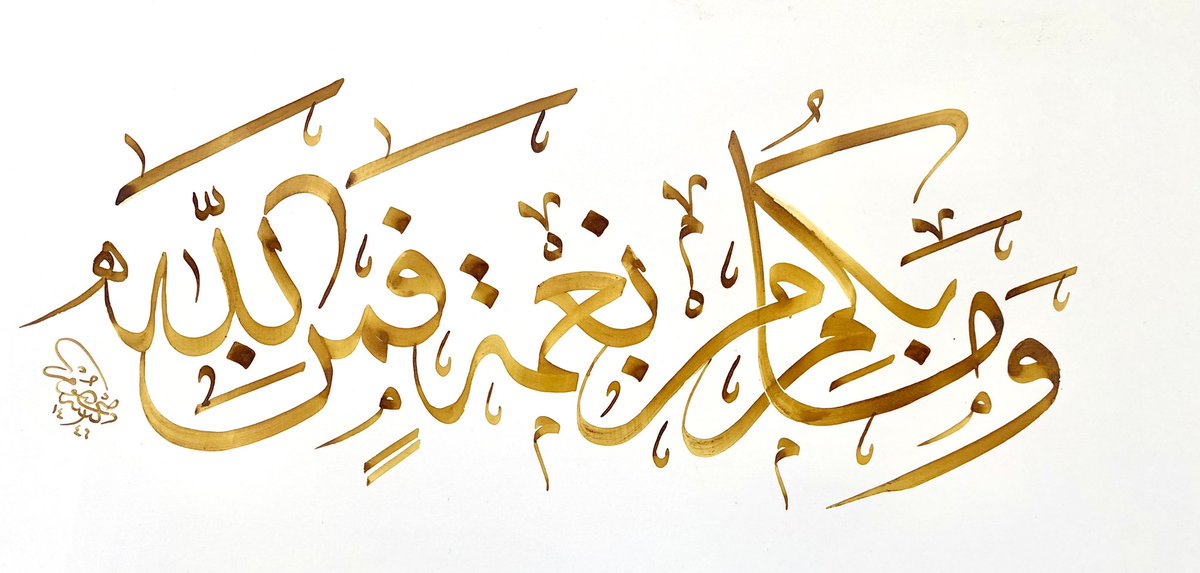 وَمَا بِكُم مِّن نِّعْمَةٍ فَمِنَ اللَّهِ
١٤٤٦